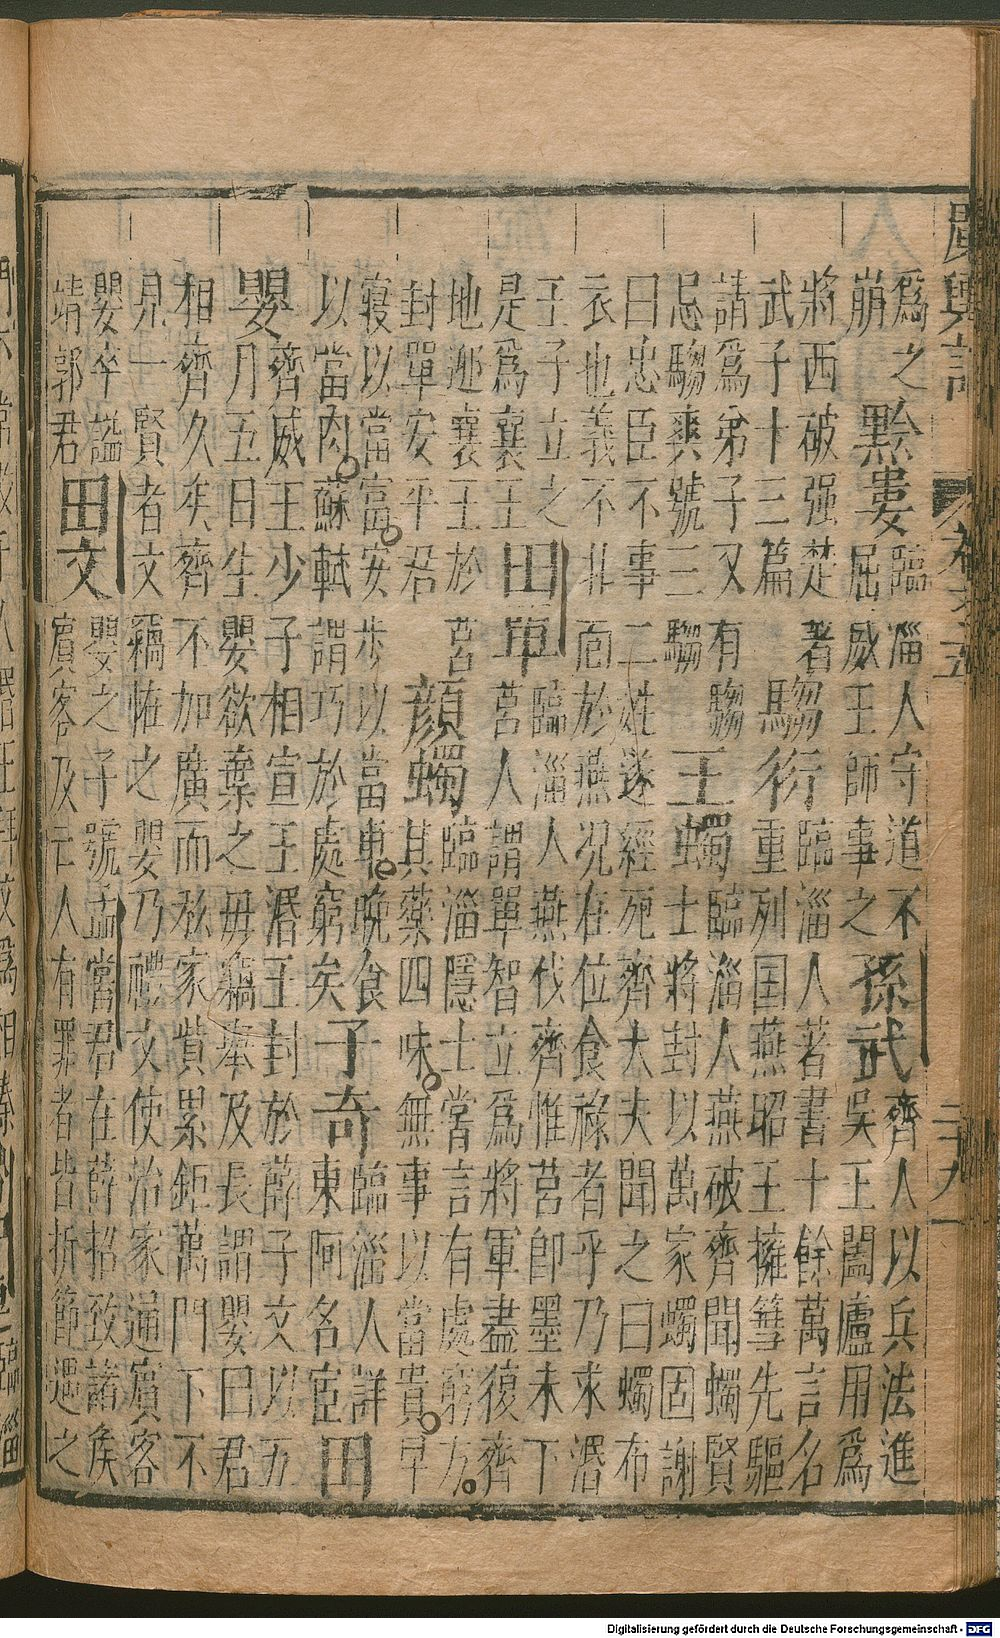 廣輿記
卷之五
二十九
爲之
崩
黔婁
臨淄人守道不
屈威王師事之
孫武
齊人以兵法進
吳王闔廬用爲
將西破强楚著
武子十三篇
騶衍
臨淄人著書十餘萬言名
重列国燕昭王擁篲先驅
請爲弟子又有騶
忌騶奭號三騶
王蠋
臨淄人燕破齊聞蠋賢
士將封以萬家蠋固謝
曰忠臣不事二姓遂經死齊大夫聞之曰蠋布
衣也義不北面於燕况在位食祿者乎乃求湣
王子立之
是爲襄王
田單
臨淄人燕伐齊惟莒卽墨未下
莒人謂單智立爲將軍盡復齊
地迎襄王於莒
封單安平君
顏蠋
臨淄隱士嘗言有處窮方
其藥四味無事以當貴早
寢以當富安步以當車晚食
以當肉蘇軾謂巧於處窮矣
子奇
臨淄人詳
東阿名宦
田
嬰
齊威王少子相宣王湣王封於薛子文以五
月五日生嬰欲棄之毋竊舉及長謂嬰曰君
相齊久矣齊不加廣而私家貲累鉅萬門下不
見一賢者文竊恠之嬰乃禮文使治家通賓客
嬰卒謚
靖郭君
田文
嬰之子號孟嘗君在薛招致諸矦
賓客及亡人有罪者皆折節遇之
Digitalisierung gefördert durch die Deutsche Forschungsgemeinschaft - DFG